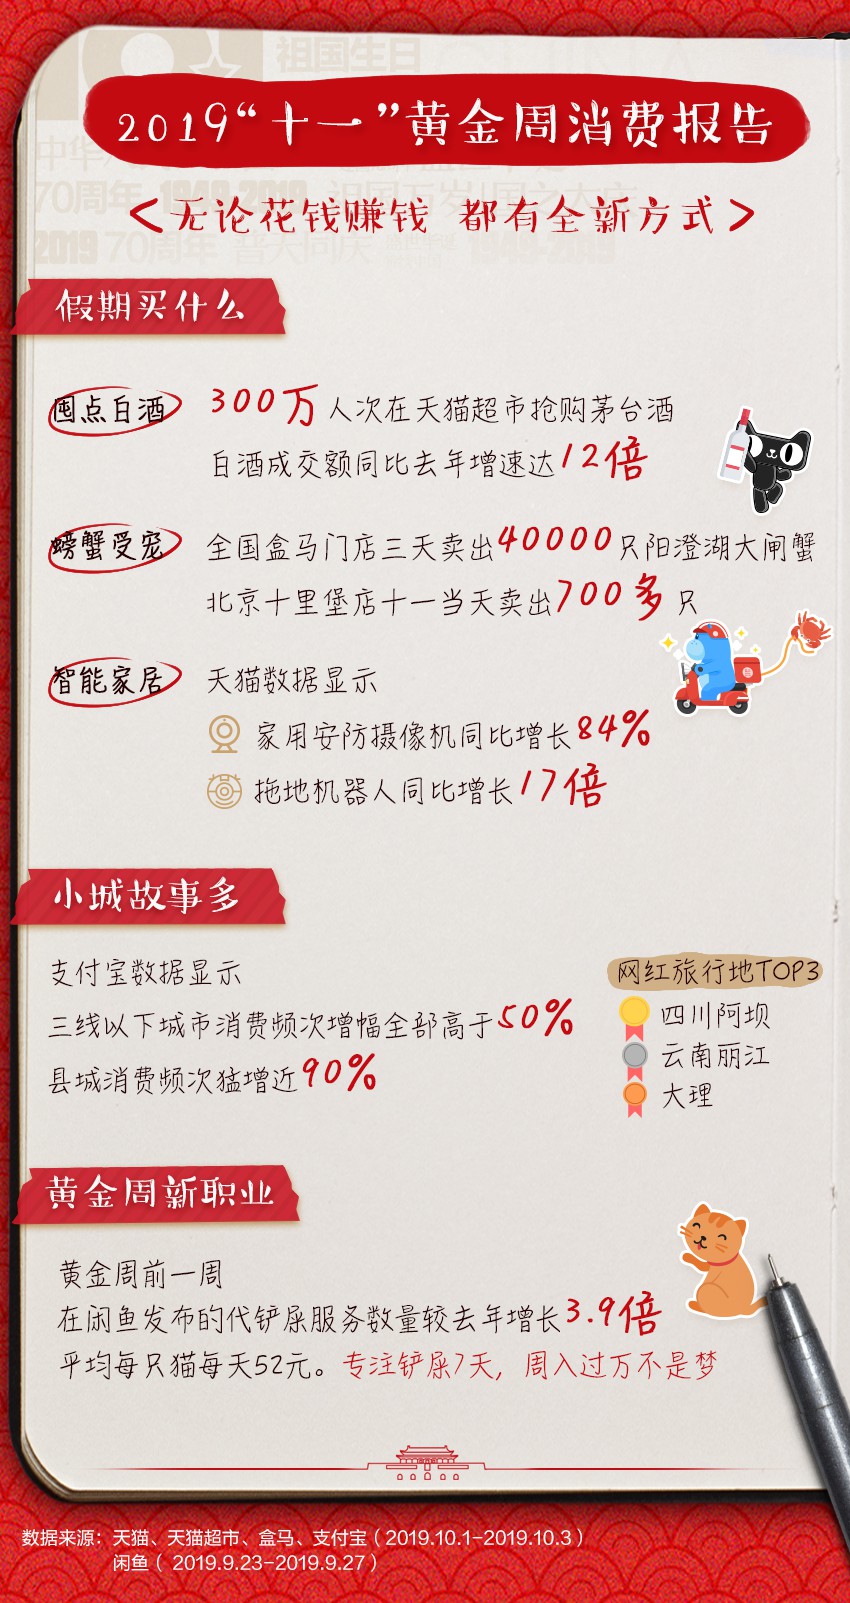 祖国生日
70周年 1949-2019
2019 70周年 普天同庆
2019“十一”黄金周消费报告
<无论花钱赚钱 都有全新方式>
假期买什么
囤点白酒
300万人次在天猫超市抢购茅台酒
白酒成交额同比去年增速达12倍
螃蟹受宠
全国盒马门店三天卖出40000只阳澄湖大闸蟹
北京十里堡店十一当天卖出700多只
智能家居
天猫数据显示
家用安防摄像机同比增长84%
拖地机器人同比增长17倍
小城故事多
支付宝数据显示
三线以下城市消费频次增幅全部高于50%
县城消费频次猛增近90%
网红旅行地TOP3
四川阿坝
云南丽江
大理
黄金周新职业
黄金周前一周
在闲鱼发布的代铲屎服务数量较去年增长3.9倍
平均每只猫每天52元。专注铲屎7天,周入过万不是梦
数据来源:天猫、天猫超市、盒马、支付宝(2019.10.1-2019.10.3)
闲鱼( 2019.9.23-2019.9.27)